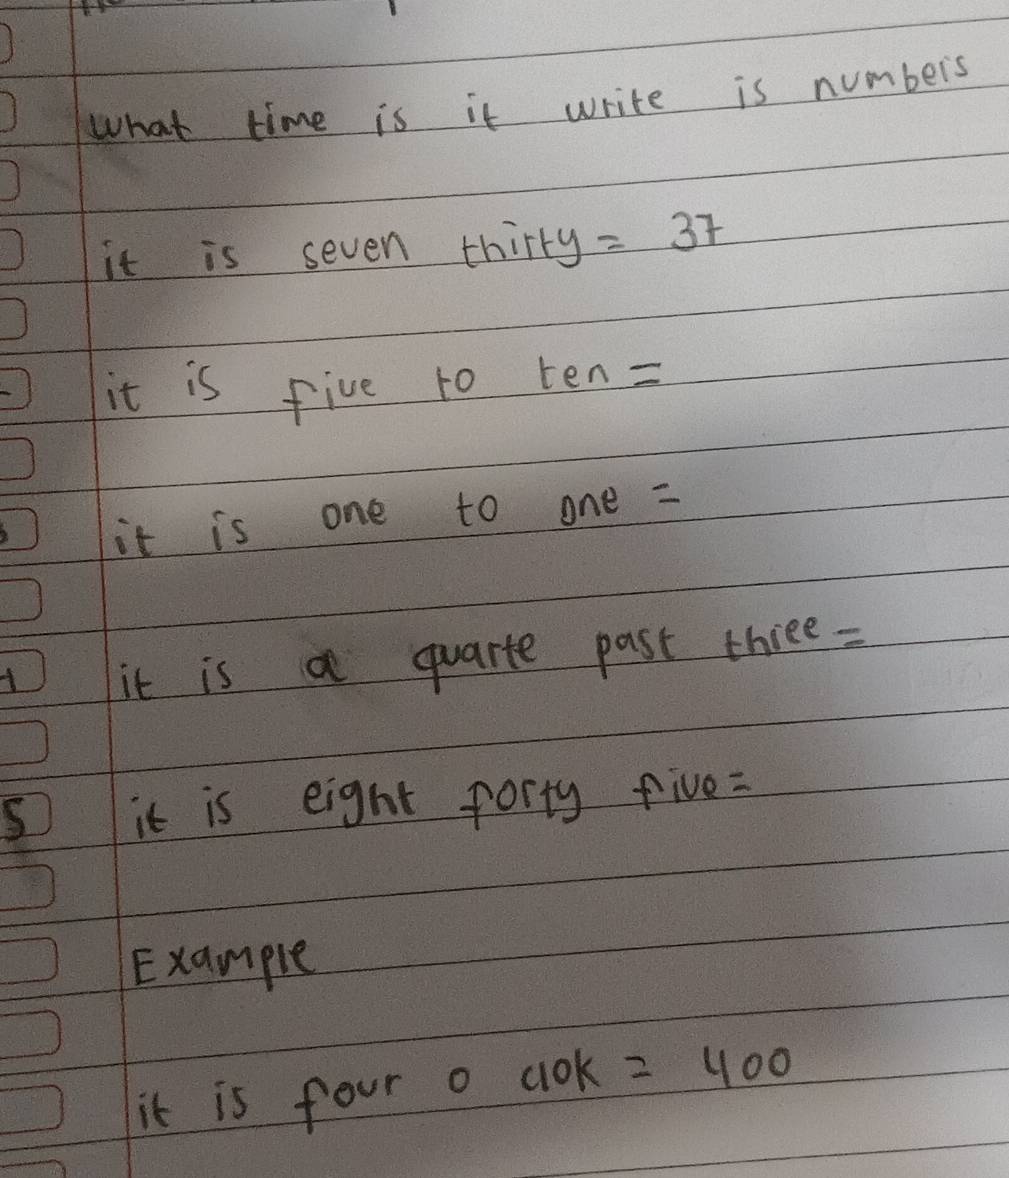 what time is it write is numbers
it is seven thirty = 37
it is five to ten =
it is one to one =
it is a quarte past three =
5 it is eight forty five =
Example
it is four o clok = 400